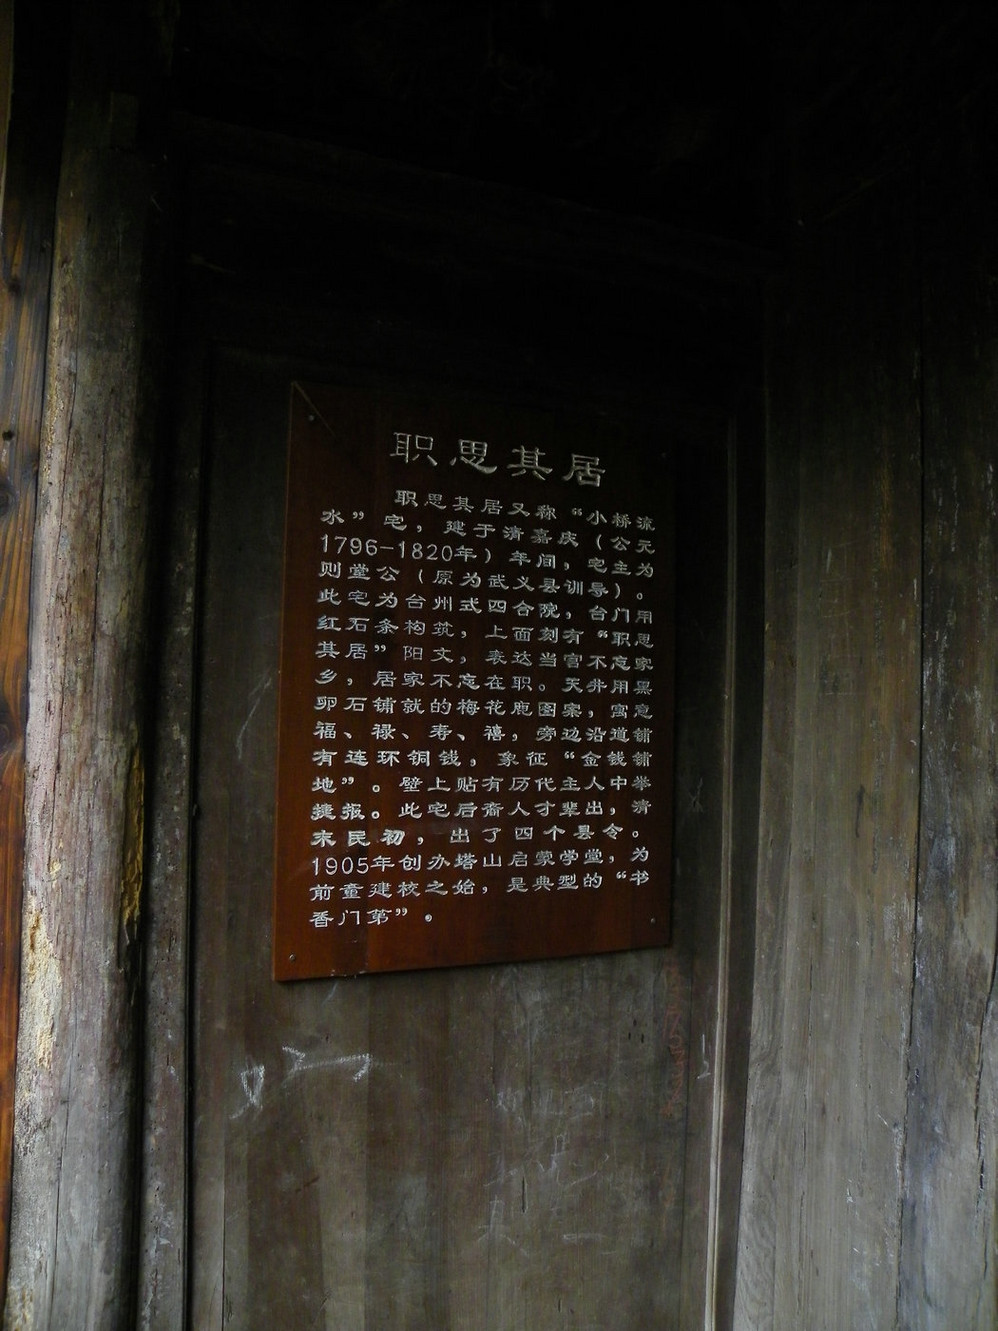 职思其居
职思其居又称“小桥流
水”宅，建于清嘉庆（公元
1796-1820年）年间，宅主为
则堂公（原为武义县训导）。
此宅为台州式四合院，台门用
红石条构筑，上面刻有“职思
其居”阳文，表达当官不忘家
乡，居家不忘在职。天井用黑
卵石铺就的梅花鹿图案，寓意
福、禄、寿、禧，旁边沿道铺
有连环铜钱，象征“金钱铺
地”。壁上贴有历代主人中举
捷报。此宅后裔人才辈出，清
末民初，出了四个县令。
1905年创办塔山启蒙学堂，为
前童建校之始，是典型的“书
香门第”。